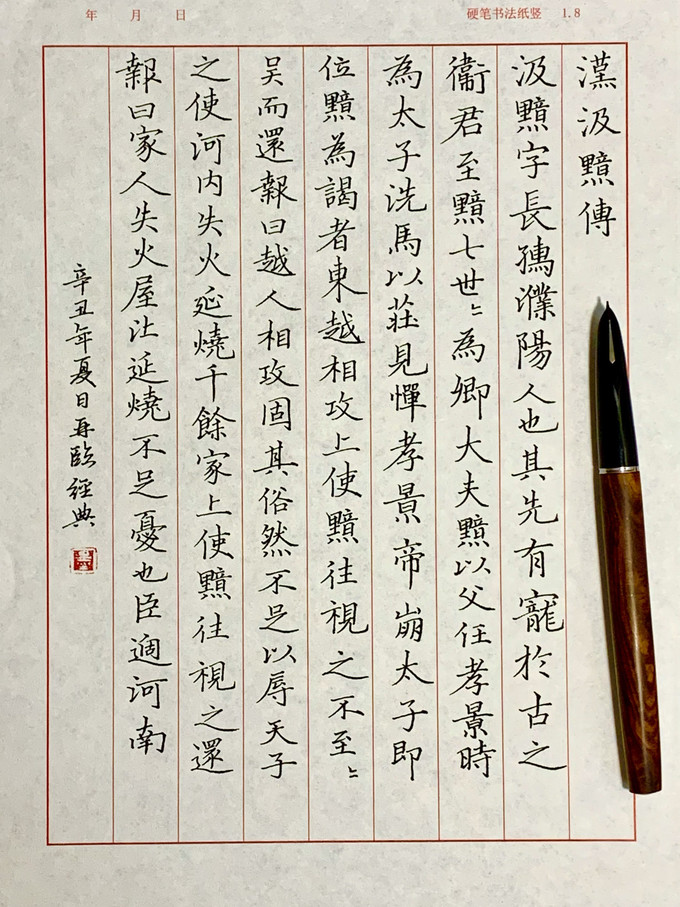 年 月 日
硬笔书法纸竖 1.8
漢汲黯傳
汲黯字長孺濮陽人也其先有寵於古之
衞君至黯七世〻為卿大夫黯以父任孝景時
為太子洗馬以莊見憚孝景帝崩太子即
位黯為謁者東越相攻上使黯往視之不至〻
吴而還報曰越人相攻固其俗然不足以辱天子
之使河内失火延燒千餘家上使黯往視之還
報曰家人失火屋比延燒不足憂也臣過河南
辛丑年夏日再臨經典